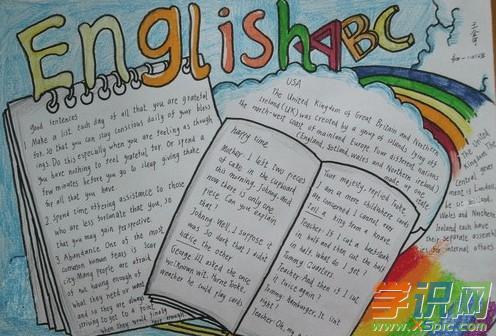 English ABC
Good sentences
1 Make a list each day of all that you are grateful
for, so that you can stay conscious daily of your bless
ings. Do this especially when you are feeling as though
you have nothing to feel grateful for. Or spend a
few minutes before you go to sleep giving thanks
for all that you have.
2 Spend time offering assistance to those
who are less fortunate that you, so
that you may gain perspective.
3 Abundance. One of the most
common human fears is scar
city. Many people are afraid
of not having enough of
what they need or want,
and so they are always
striving to get to a point
when they would finally
happy time
Mother: I left two pieces
of cake in the cupboard
this morning, Johnny, and
now there is only one
piece. Can you explain
that?
Johnny: Well, I suppose it
was so dark that I didn't
notice the other
George III asked the once
well known wit,
whether he could play cards.
Your majesty, replied Tooke,
I am a mere child where cards
are concerned I cannot even
tell a king from a knave.
Teacher: If I cut a beefsteak
in half and then cut the half
in half, what do I get?
Tommy: Quarters.
Teacher: And then if I cut
it twice again?
Tommy: hamburger.
right?
Teacher: Oh, my
USA
The United Kingdom of Great Britain and Northern
Ireland (UK) was created by a group of islands lying off
the north-west coast of mainland Europe. Four different nations
(England, Scotland, Wales and Northern Ireland)
make up one state
The United
Kingdom. The
central govern
ment is London
Wales and Northern
Ireland each have
their separate assemb
internal affairs
学识网
www.X5pic.com